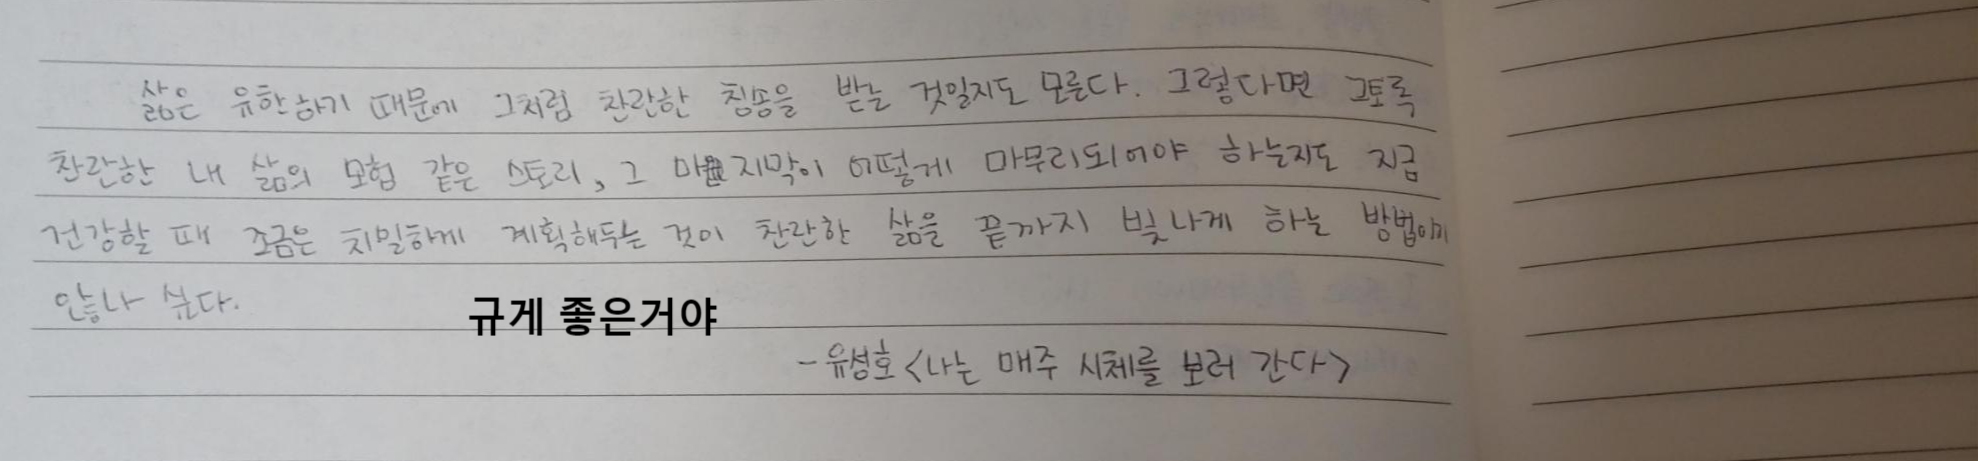 삶은 유한하기 때문에 그처럼 찬란한 칭송을 받는 것일지도 모른다. 그렇다면 그토록
찬란한 내 삶의 모험 같은 스토리, 그 마지막이 어떻게 마무리되어야 하는지도 지금
건강할 때 조금은 치밀하게 계획해두는 것이 찬란한 삶을 끝까지 빛나게 하는 방법이지
않나 싶다.
규게 좋은거야
- 유성호 <나는 매주 시체를 보러 간다>